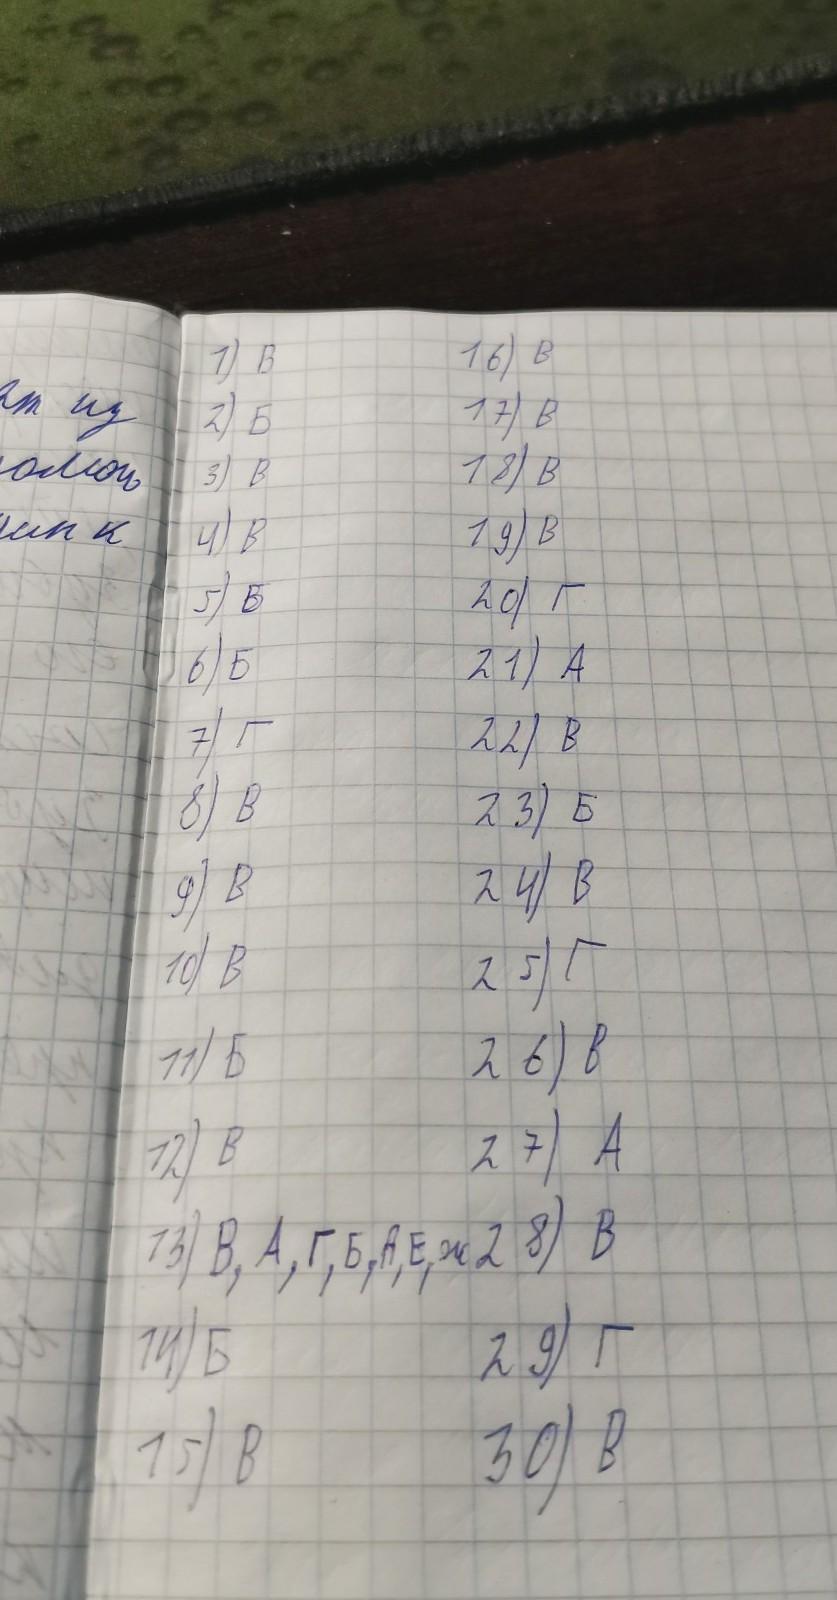 1) В
2) Б
3) В
4) В
5) Б
6) Б
7) Г
8) В
9) В
10) В
11) Б
12) В
13) В, А, Г, Б, А, Е, ж
14) Б
15) В
16) В
17) В
18) В
19) В
20) Г
21) А
22) В
23) Б
24) В
25) Г
26) В
27) А
28) В
29) Г
30) В
из
к